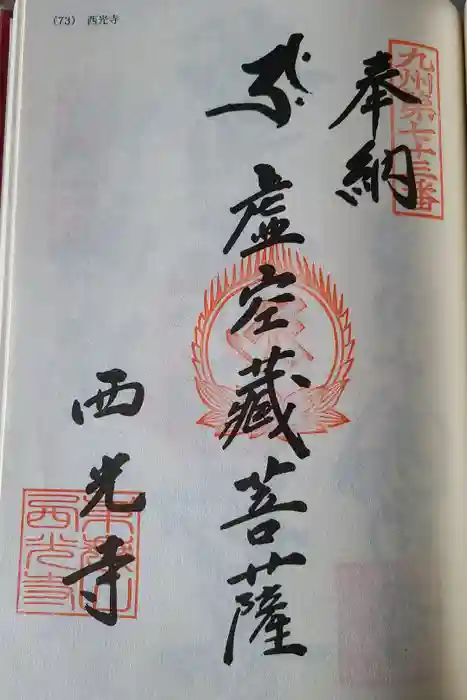 (73) 西光寺
九州第七十三番
奉納
虚空蔵菩薩
西光寺
西光寺